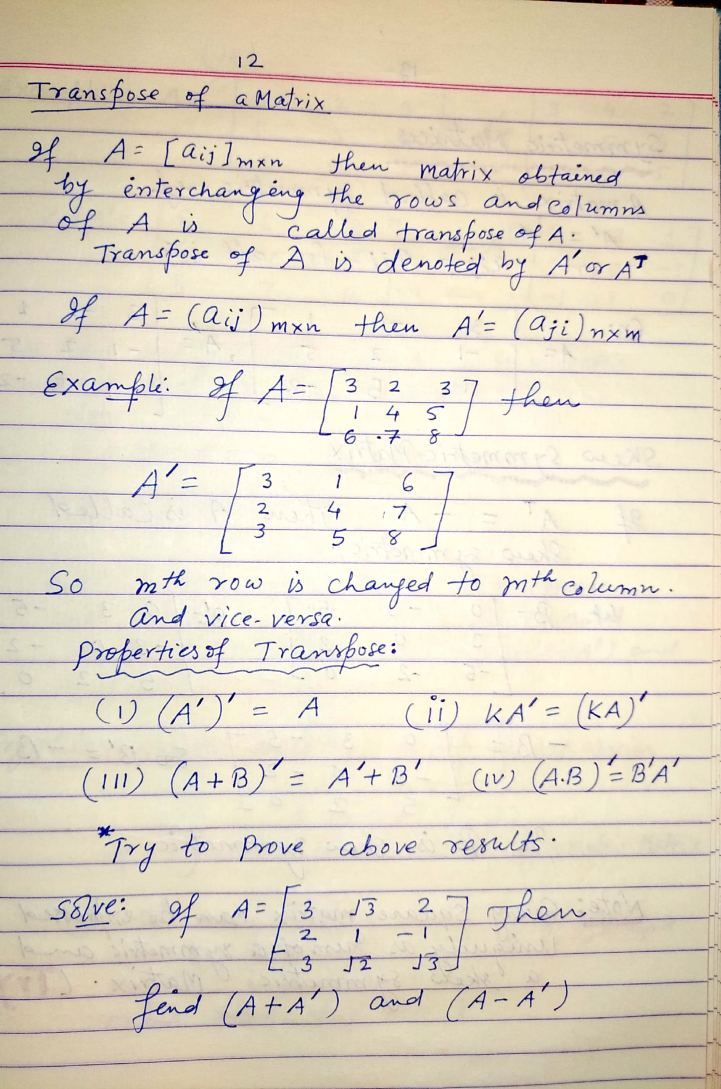 12
Transpose of a Matrix
If A = [aij]m×n then matrix obtained
by interchanging the rows and columns
of A is called transpose of A.
Transpose of A is denoted by A' or Aᵀ
If A = (aij)m×n then A' = (aji)n×m
Example: If A = [3 2 3] then
1 4 5
6 7 8
A' = [3 1 6]
2 4 7
3 5 8
So mth row is changed to mth column.
and vice-versa.
Properties of Transpose:
(i) (A')' = A (ii) KA' = (KA)'
(III) (A+B)' = A'+B' (iv) (A.B)' = B'A'
*Try to Prove above results.
Solve: If A = [3 √3 2] Then
2 1 -1
3 √2 √3
find (A+A') and (A-A')